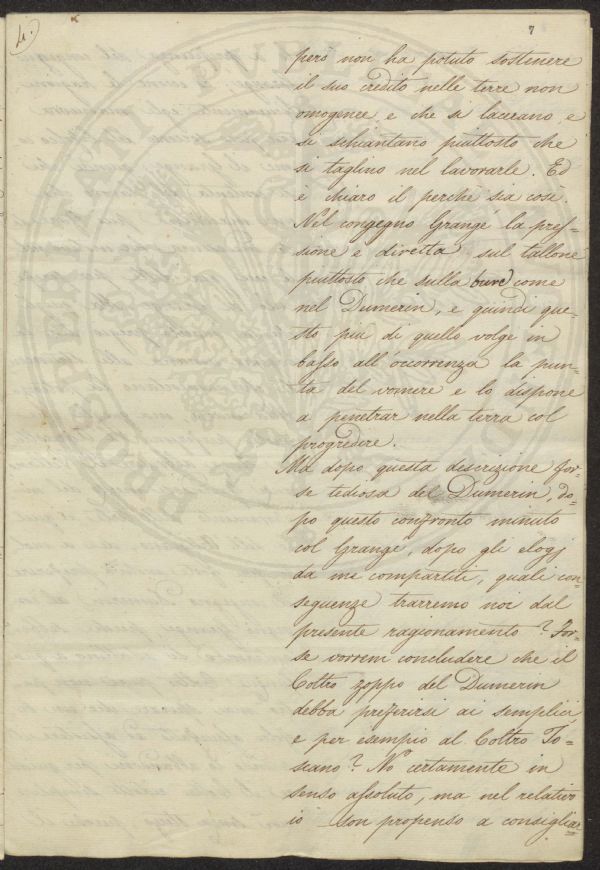 4.
7
però non ha potuto sostenere
il suo credito nelle terre non
omogenee, e che si lacerano, e
si schiantano piuttosto che
si taglino nel lavorarle. Ed
è chiaro il perchè sia così.
Nel congegno Grangé la pres-
sione è diretta sul tallone
piuttosto che sulla bure come
nel Dumerin, e quindi que-
sto più di quello volge in
basso all'occorrenza la pun-
ta del vomere e lo dispone
a penetrar nella terra col
progredire.
Ma dopo questa descrizione for-
se tediosa del Dumerin, do-
po questo confronto minuto
col Grangé, dopo gli elogj
da me compartiti, quali con-
seguenze trarremo noi dal
presente ragionamento? For-
se vorrem concludere che il
Coltro zoppo del Dumerin
debba preferirsi ai semplici,
e per esempio al Coltro To-
scano? No certamente in
senso assoluto, ma nel relativo
io son propenso a consigliar
PROSPERITATI PUBLICAE